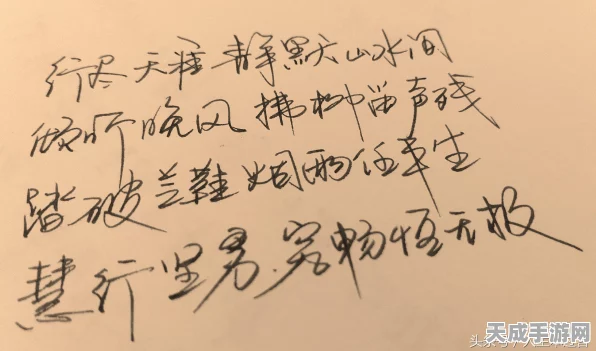 行尽天涯 静默山水间
倾听晚风 拂柳笛声残
踏破芒鞋 烟雨任平生
慧行坚勇.究畅恒无极
天成手游网